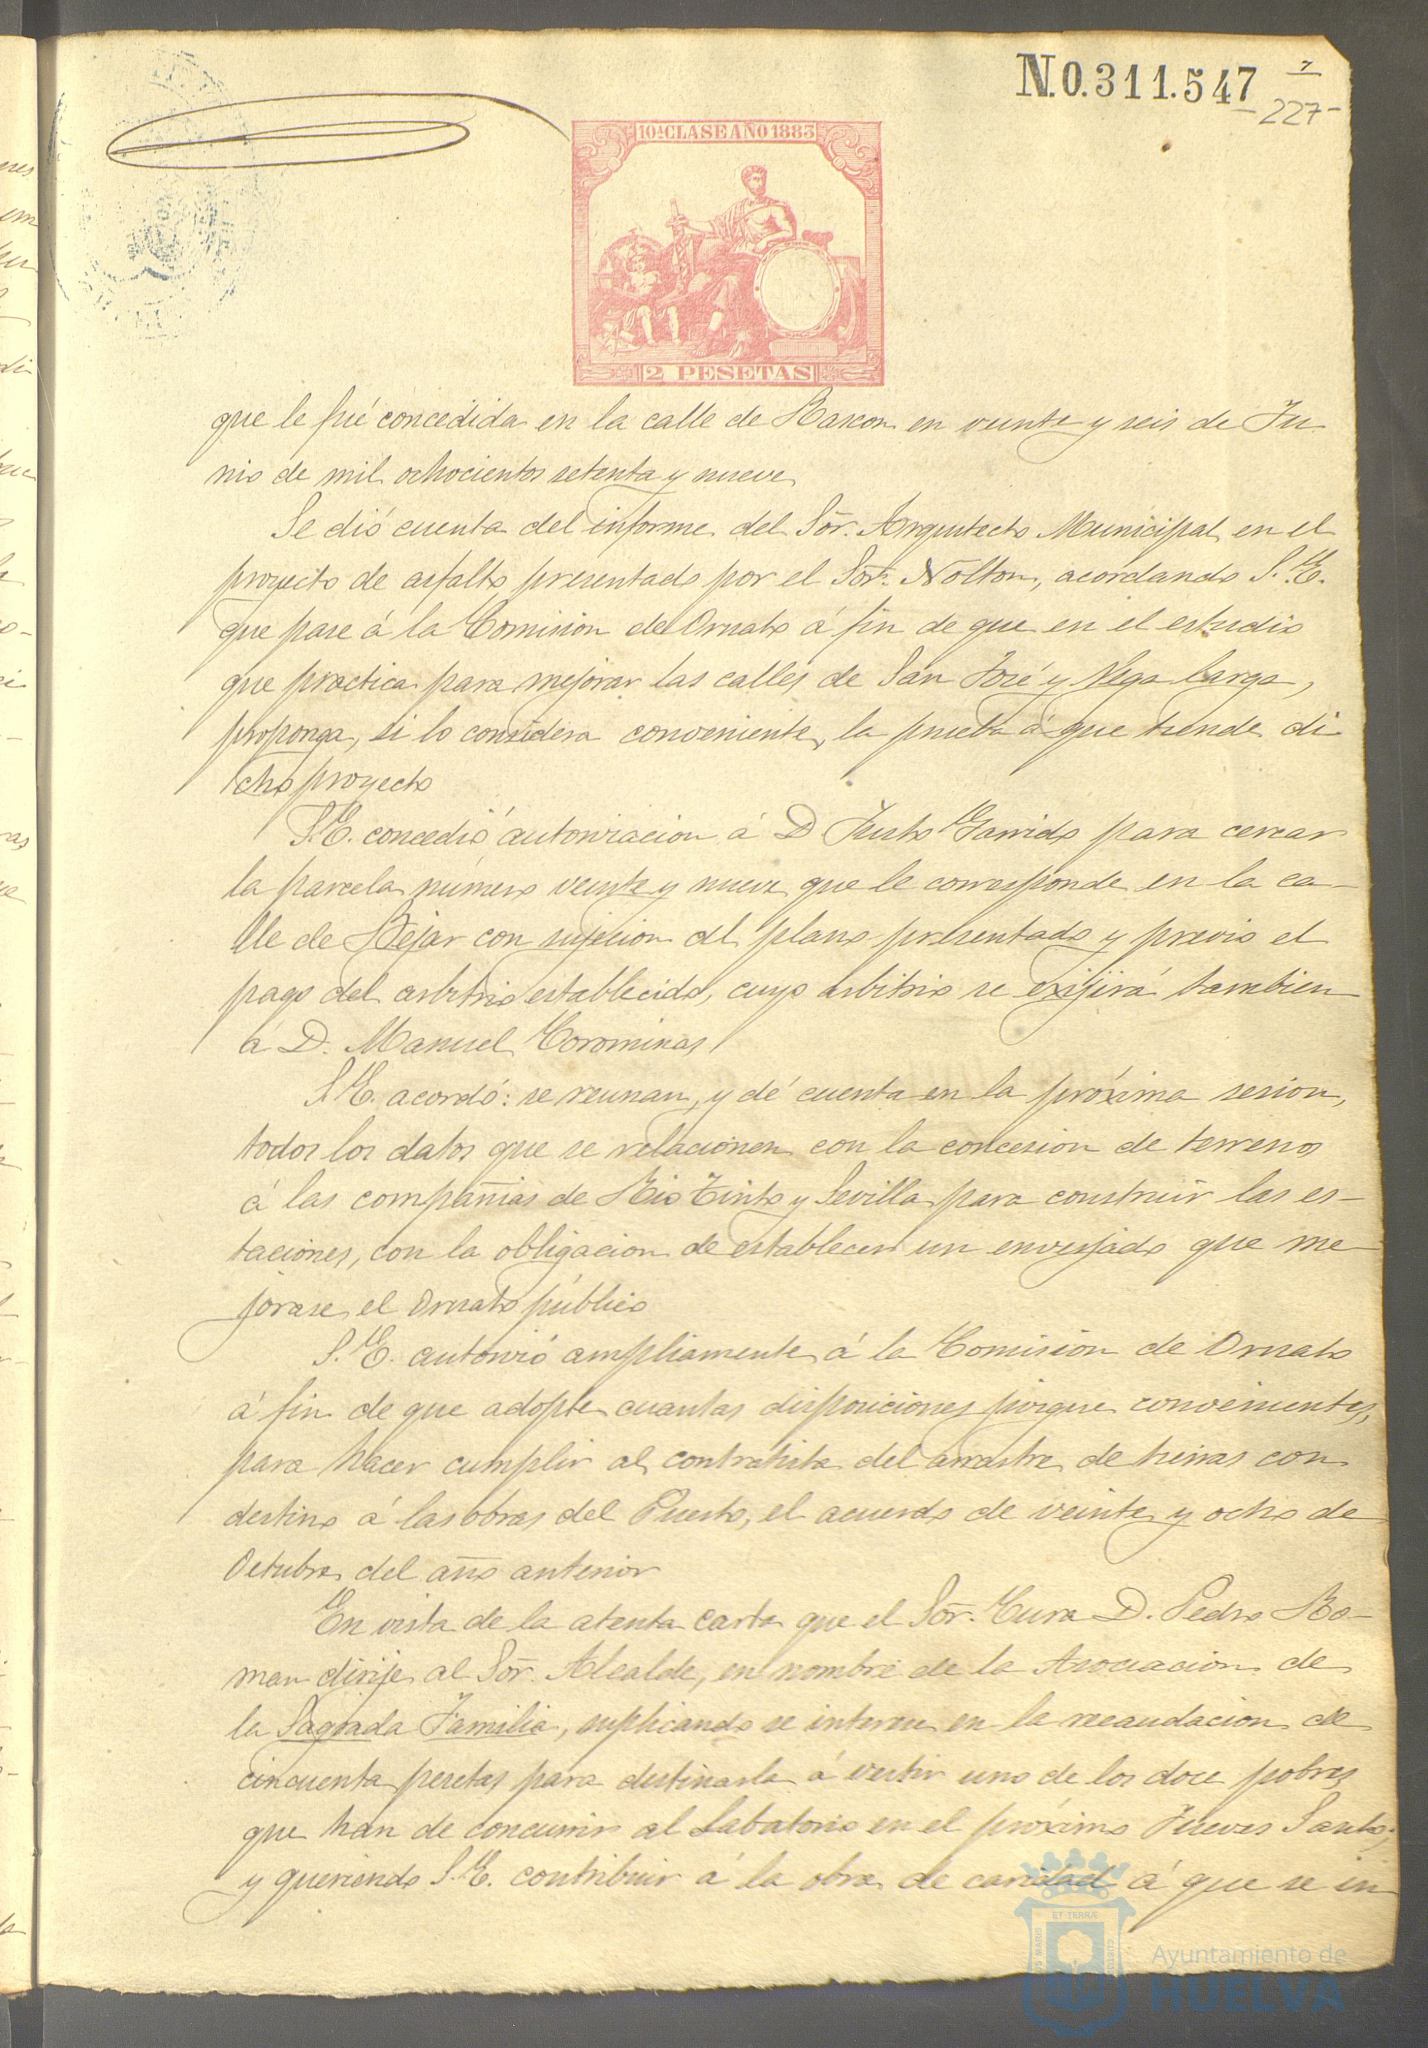 N.0.311.547
227
10ª CLASE AÑO 1883
2 PESETAS
que le fué concedida en la calle de Rascon en veinte y seis de Ju-
nio de mil ochocientos setenta y nueve
Se dió cuenta del informe del Sor. Arquitecto Municipal en el
proyecto de asfalto presentado por el Sor. Nolton, acordando S.E.
que pase á la Comision de Ornato á fin de que en el estudio
que practica para mejorar las calles de San José y Vega larga,
proponga, si lo considera conveniente, la prueba á que tiende di
cho proyecto
S.E. concedió autorizacion á D Justo Garrido para cercar
la parcela número veinte y nueve que le corresponde en la ca-
lle de Bejar con sujecion al plano presentado y previo el
pago del arbitrio establecido, cuyo arbitrio se exijirá tambien
á D. Manuel Corominas
S.E. acordó: se reunan, y dé cuenta en la próxima sesion,
todos los datos que se relacionen con la concesion de terrenos
á las compañias de Rio Tinto y Sevilla para construir las es-
taciones, con la obligacion de establecer un enverjado que me-
jorase el Ornato público
S.E. autorizó ampliamente á la Comision de Ornato
á fin de que adopte cuantas disposiciones juzgue convenientes,
para hacer cumplir al contratista del arrastre de tierras con
destino á las obras del Puerto, el acuerdo de veinte y ocho de
Octubre del año anterior
En vista de la atenta carta que el Sor. Cura D. Pedro Ro-
man dirije al Sor. Alcalde, en nombre de la Asociacion de
la Sagrada Familia, suplicando se interese en la recaudacion de
cincuenta pesetas para destinarla á vestir uno de los doce pobres
que han de concurrir al Labatorio en el próximo Jueves Santo;
y queriendo S.E. contribuir á la obra de caridad á que se in
Ayuntamiento de
HUELVA